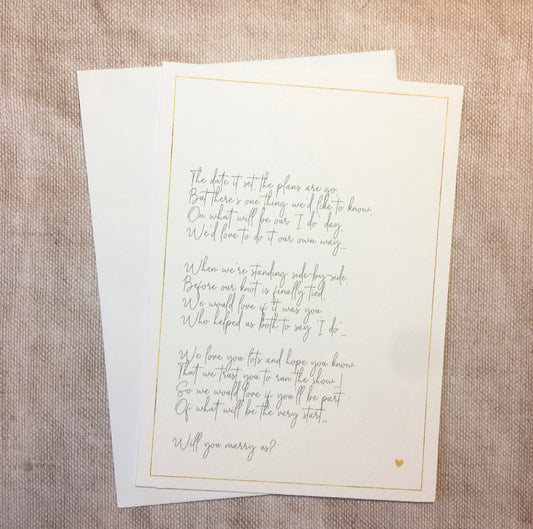 The date it set, the plans are go,
But there's one thing we'd like to know.
On what will be our 'I do' day,
We'd love to do it our own way...
When we're standing side-by-side,
Before our knot is finally tied,
We would love if it was you
Who helped us both to say 'I do'...
We love you lots and hope you know
That we trust you to run the show...!
So we would love if you'll be part
Of what will be the very start...
Will you marry us?